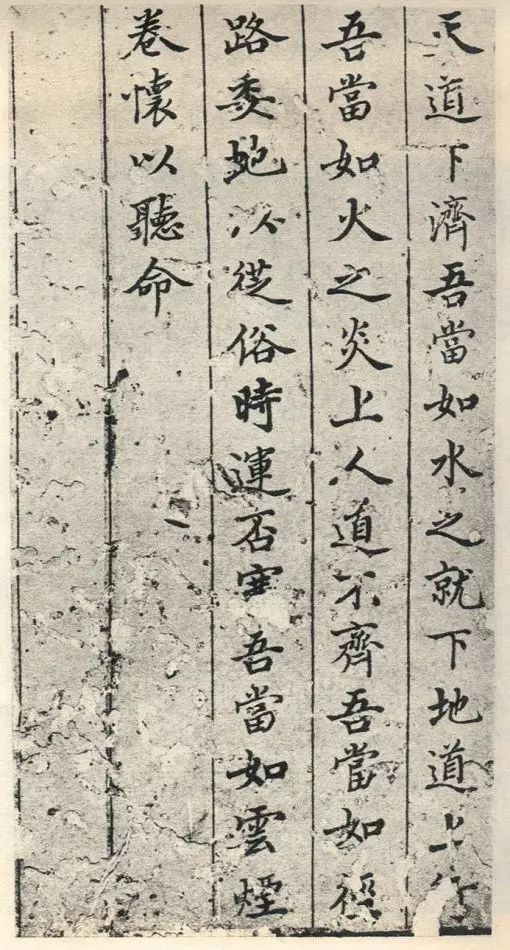 天道下濟吾當如水之就下地道上行
吾當如火之炎上人道不齊吾當如徑
路委地以従俗時運否塞吾當如雲煙
卷懷以聽命